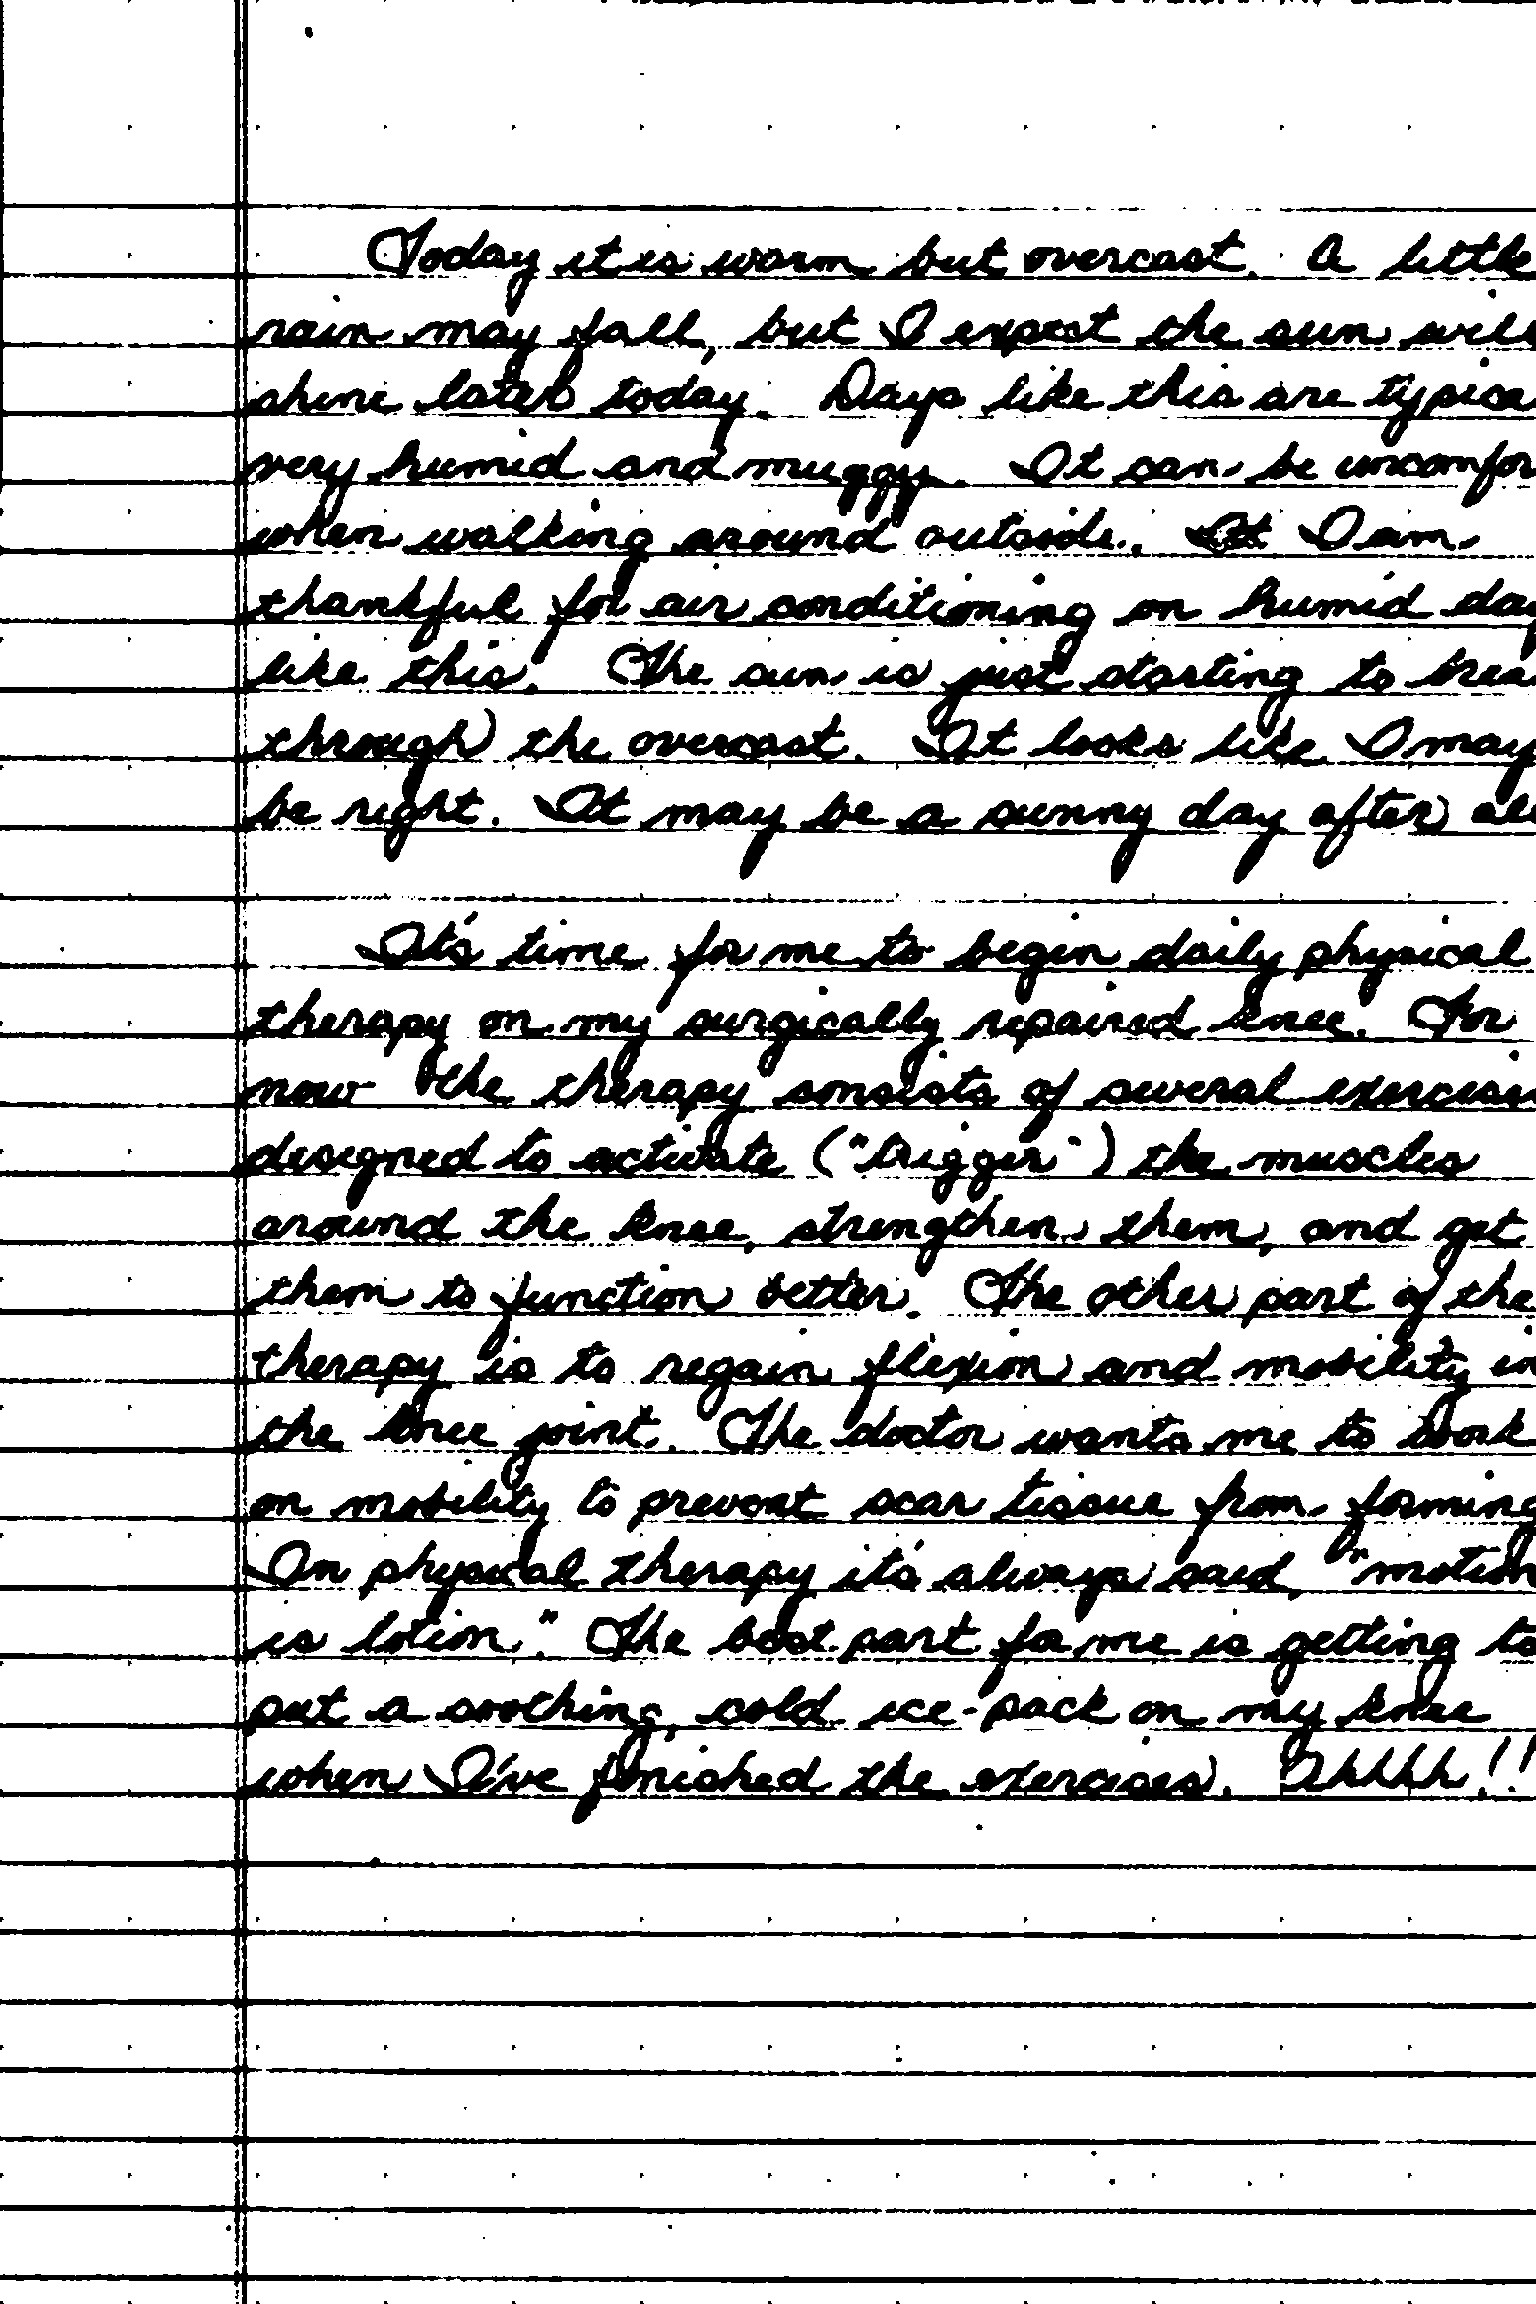 Today it is warm but overcast. A little
rain may fall, but I expect the sun will
shine later today. Days like this are typica
very humid and muggy. It can be uncomfor
when walking around outside. It I am
thankful for air conditioning on humid day
like this. The sun is just starting to brea
through the overcast. It looks like I may
be right. It may be a sunny day after all
It's time for me to begin daily physical
therapy on my surgically repaired knee. For
now the therapy consists of several exercise
designed to activate ("trigger") the muscles
around the knee, strengthen them, and get
them to function better. The other part of the
therapy is to regain flexion and mobility in
the knee joint. The doctor wants me to work
on mobility to prevent scar tissue from forming
In physical therapy it's always said, "motion
is lotion." The best part for me is getting to
put a soothing, cold ice-pack on my knee
when I've finished the exercises. Ahhhh!!